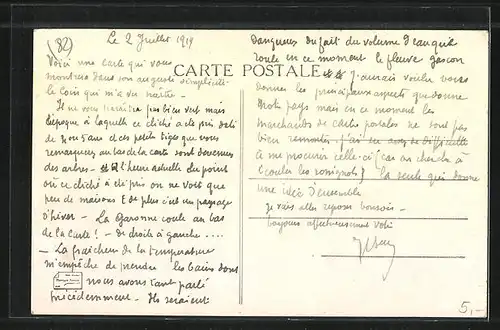 (82)
Le 2 Juillet 1919
Voici une carte qui vous
montrera dans son auguste simplicité
le coin qui m'a vu naître -
Il ne vous paraîtra pas bien vert mais
l'époque à laquelle ce cliché a été pris date
de 4 ou 5 ans et ces petites tiges que vous
remarquez au bas de la carte sont devenues
des arbres - à l'heure actuelle du point
où ce cliché a été pris on ne voit que
peu de maisons & de plus c'est un paysage
d'hiver - La Garonne coule au bas
de la carte ! - de droite à gauche ....
- La fraîcheur de la température
m'empêche de prendre les bains dont
nous avons tant parlé
précédemment - Ils seraient
CARTE POSTALE
dangereux du fait du volume d'eau que
roule en ce moment le fleuve gascon
J'aurais voulu vous
donner les principaux aspects que donne
Notre pays mais en ce moment les
marchands de cartes postales ne sont pas
bien remontés - j'ai eu assez de difficultés
à me procurer celle-ci (car on cherche à
écouler les rossignols) la seule qui donne
une idée d'ensemble
Je vais aller reposer bonsoir -
toujours affectueusement votre
5,-